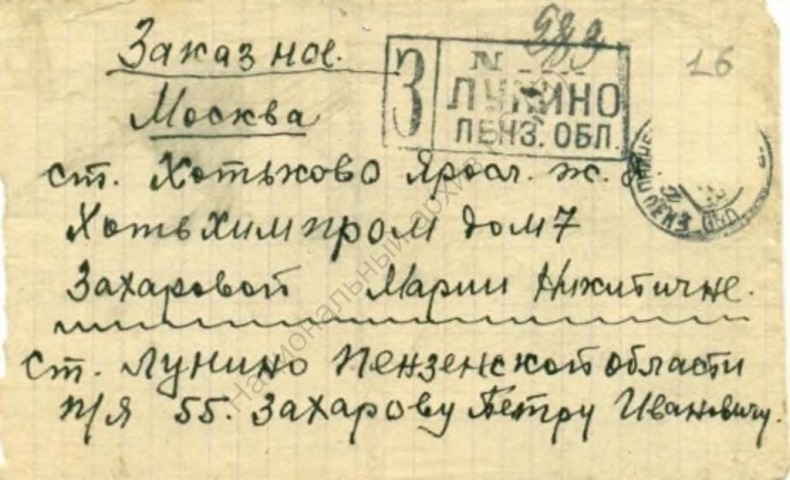 Заказное.
З № 583
ЛУНИНО
ПЕНЗ. ОБЛ.
16
Москва
ст. Хотьково Яросл. ж. д.
Хотьхимпром дом 7
Захаровой Марии Никитичне.
ст. Лунино Пензенской области
п/я 55. Захарову Петру Ивановичу.
Национальный архив